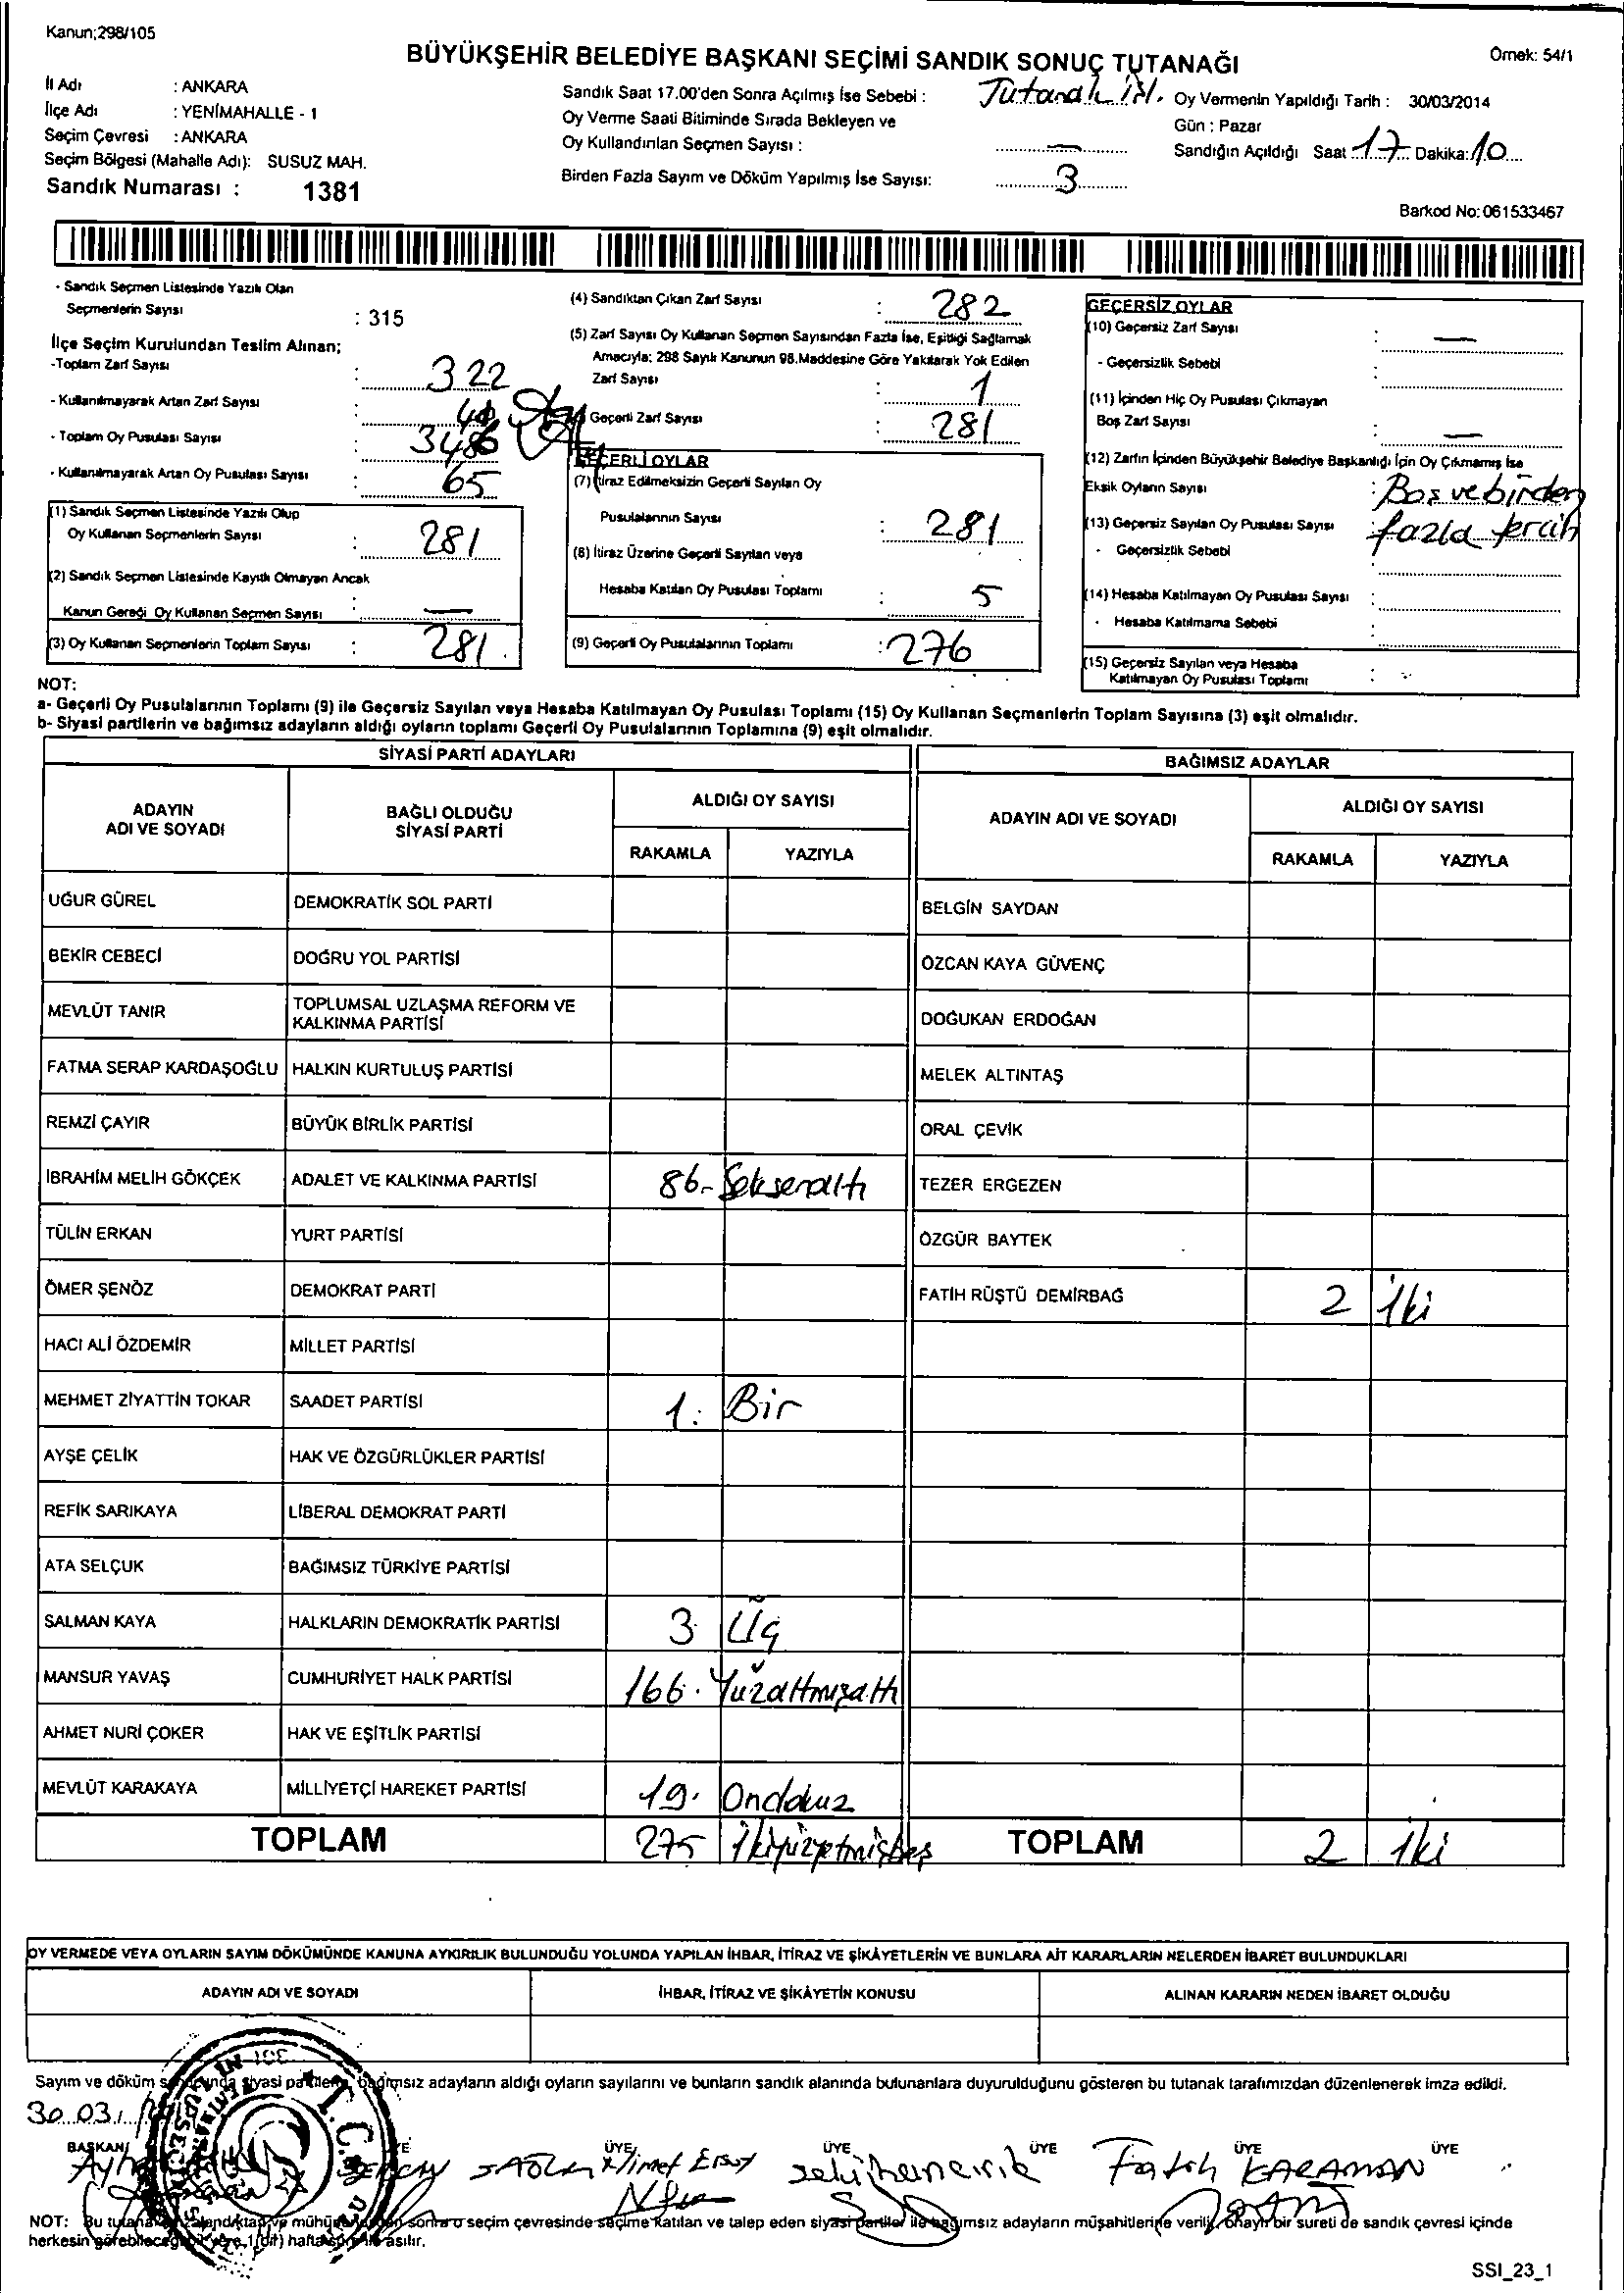 Kanun;298/105
BÜYÜKŞEHİR BELEDİYE BAŞKANI SEÇİMİ SANDIK SONUÇ TUTANAĞI
Örnek: 54/1
İl Adı : ANKARA
İlçe Adı : YENİMAHALLE - 1
Seçim Çevresi : ANKARA
Seçim Bölgesi (Mahalle Adı): SUSUZ MAH.
Sandık Numarası : 1381
Sandık Saat 17.00'den Sonra Açılmış İse Sebebi : Tutanak
Oy Verme Saati Bitiminde Sırada Bekleyen ve
Oy Kullandırılan Seçmen Sayısı : —
Birden Fazla Sayım ve Döküm Yapılmış İse Sayısı: 3
Oy Vermenin Yapıldığı Tarih : 30/03/2014
Gün : Pazar
Sandığın Açıldığı Saat 17 Dakika: 10
Barkod No: 061533467
- Sandık Seçmen Listesinde Yazılı Olan
Seçmenlerin Sayısı : 315
İlçe Seçim Kurulundan Teslim Alınan;
-Toplam Zarf Sayısı : 322
- Kullanılmayarak Artan Zarf Sayısı :
- Toplam Oy Pusulası Sayısı :
- Kullanılmayarak Artan Oy Pusulası Sayısı : 65
(1) Sandık Seçmen Listesinde Yazılı Olup
Oy Kullanan Seçmenlerin Sayısı : 281
(2) Sandık Seçmen Listesinde Kayıtlı Olmayan Ancak
Kanun Gereği Oy Kullanan Seçmen Sayısı : —
(3) Oy Kullanan Seçmenlerin Toplam Sayısı : 281
(4) Sandıktan Çıkan Zarf Sayısı : 282
(5) Zarf Sayısı Oy Kullanan Seçmen Sayısından Fazla İse, Eşitliği Sağlamak
Amacıyla; 298 Sayılı Kanunun 98.Maddesine Göre Yakılarak Yok Edilen
Zarf Sayısı : 1
Geçerli Zarf Sayısı : 281
GEÇERLİ OYLAR
(7) İtiraz Edilmeksizin Geçerli Sayılan Oy
Pusulalarının Sayısı : 281
(8) İtiraz Üzerine Geçerli Sayılan veya
Hesaba Katılan Oy Pusulası Toplamı : 5
(9) Geçerli Oy Pusulalarının Toplamı : 276
GEÇERSİZ OYLAR
(10) Geçersiz Zarf Sayısı : —
- Geçersizlik Sebebi :
(11) İçinden Hiç Oy Pusulası Çıkmayan
Boş Zarf Sayısı : —
(12) Zarfın İçinden Büyükşehir Belediye Başkanlığı İçin Oy Çıkmamış İse
Eksik Oyların Sayısı : Boş ve birden
(13) Geçersiz Sayılan Oy Pusulası Sayısı : fazla tercih
- Geçersizlik Sebebi :
(14) Hesaba Katılmayan Oy Pusulası Sayısı :
- Hesaba Katılmama Sebebi :
(15) Geçersiz Sayılan veya Hesaba
Katılmayan Oy Pusulası Toplamı :
NOT:
a- Geçerli Oy Pusulalarının Toplamı (9) ile Geçersiz Sayılan veya Hesaba Katılmayan Oy Pusulası Toplamı (15) Oy Kullanan Seçmenlerin Toplam Sayısına (3) eşit olmalıdır.
b- Siyasi partilerin ve bağımsız adayların aldığı oyların toplamı Geçerli Oy Pusulalarının Toplamına (9) eşit olmalıdır.
SİYASİ PARTİ ADAYLARI
ADAYIN ADI VE SOYADI
BAĞLI OLDUĞU SİYASİ PARTİ
ALDIĞI OY SAYISI
RAKAMLA YAZIYLA
UĞUR GÜREL DEMOKRATİK SOL PARTİ
BEKİR CEBECİ DOĞRU YOL PARTİSİ
MEVLÜT TANIR TOPLUMSAL UZLAŞMA REFORM VE
KALKINMA PARTİSİ
FATMA SERAP KARDAŞOĞLU HALKIN KURTULUŞ PARTİSİ
REMZİ ÇAYIR BÜYÜK BİRLİK PARTİSİ
İBRAHİM MELİH GÖKÇEK ADALET VE KALKINMA PARTİSİ 86- Seksenaltı
TÜLİN ERKAN YURT PARTİSİ
ÖMER ŞENÖZ DEMOKRAT PARTİ
HACI ALİ ÖZDEMİR MİLLET PARTİSİ
MEHMET ZİYATTİN TOKAR SAADET PARTİSİ 1. Bir
AYŞE ÇELİK HAK VE ÖZGÜRLÜKLER PARTİSİ
REFİK SARIKAYA LİBERAL DEMOKRAT PARTİ
ATA SELÇUK BAĞIMSIZ TÜRKİYE PARTİSİ
SALMAN KAYA HALKLARIN DEMOKRATİK PARTİSİ 3 Üç
MANSUR YAVAŞ CUMHURİYET HALK PARTİSİ 166. Yüzaltmışaltı
AHMET NURİ ÇOKER HAK VE EŞİTLİK PARTİSİ
MEVLÜT KARAKAYA MİLLİYETÇİ HAREKET PARTİSİ 19. Ondokuz
TOPLAM 275 İkiyüzyetmişbeş
BAĞIMSIZ ADAYLAR
ADAYIN ADI VE SOYADI
ALDIĞI OY SAYISI
RAKAMLA YAZIYLA
BELGİN SAYDAN
ÖZCAN KAYA GÜVENÇ
DOĞUKAN ERDOĞAN
MELEK ALTINTAŞ
ORAL ÇEVİK
TEZER ERGEZEN
ÖZGÜR BAYTEK
FATİH RÜŞTÜ DEMİRBAĞ 2 İki
TOPLAM 2 İki
OY VERMEDE VEYA OYLARIN SAYIM DÖKÜMÜNDE KANUNA AYKIRILIK BULUNDUĞU YOLUNDA YAPILAN İHBAR, İTİRAZ VE ŞİKÂYETLERİN VE BUNLARA AİT KARARLARIN NELERDEN İBARET BULUNDUKLARI
ADAYIN ADI VE SOYADI
İHBAR, İTİRAZ VE ŞİKÂYETİN KONUSU
ALINAN KARARIN NEDEN İBARET OLDUĞU
Sayım ve döküm siyasi bağımsız adayların aldığı oyların sayılarını ve bunların sandık alanında bulunanlara duyurulduğunu gösteren bu tutanak tarafımızdan düzenlenerek imza edildi.
30.03.
BAŞKAN ÜYE ÜYE ÜYE ÜYE ÜYE
Fatih KARAMAN
NOT: Bu sonra o seçim çevresinde seçime katılan ve talep eden siyasi partiler ile bağımsız adayların müşahitlerine verilir, onaylı bir sureti de sandık çevresi içinde
herkesin görebileceği asılır.
SSI_23_1